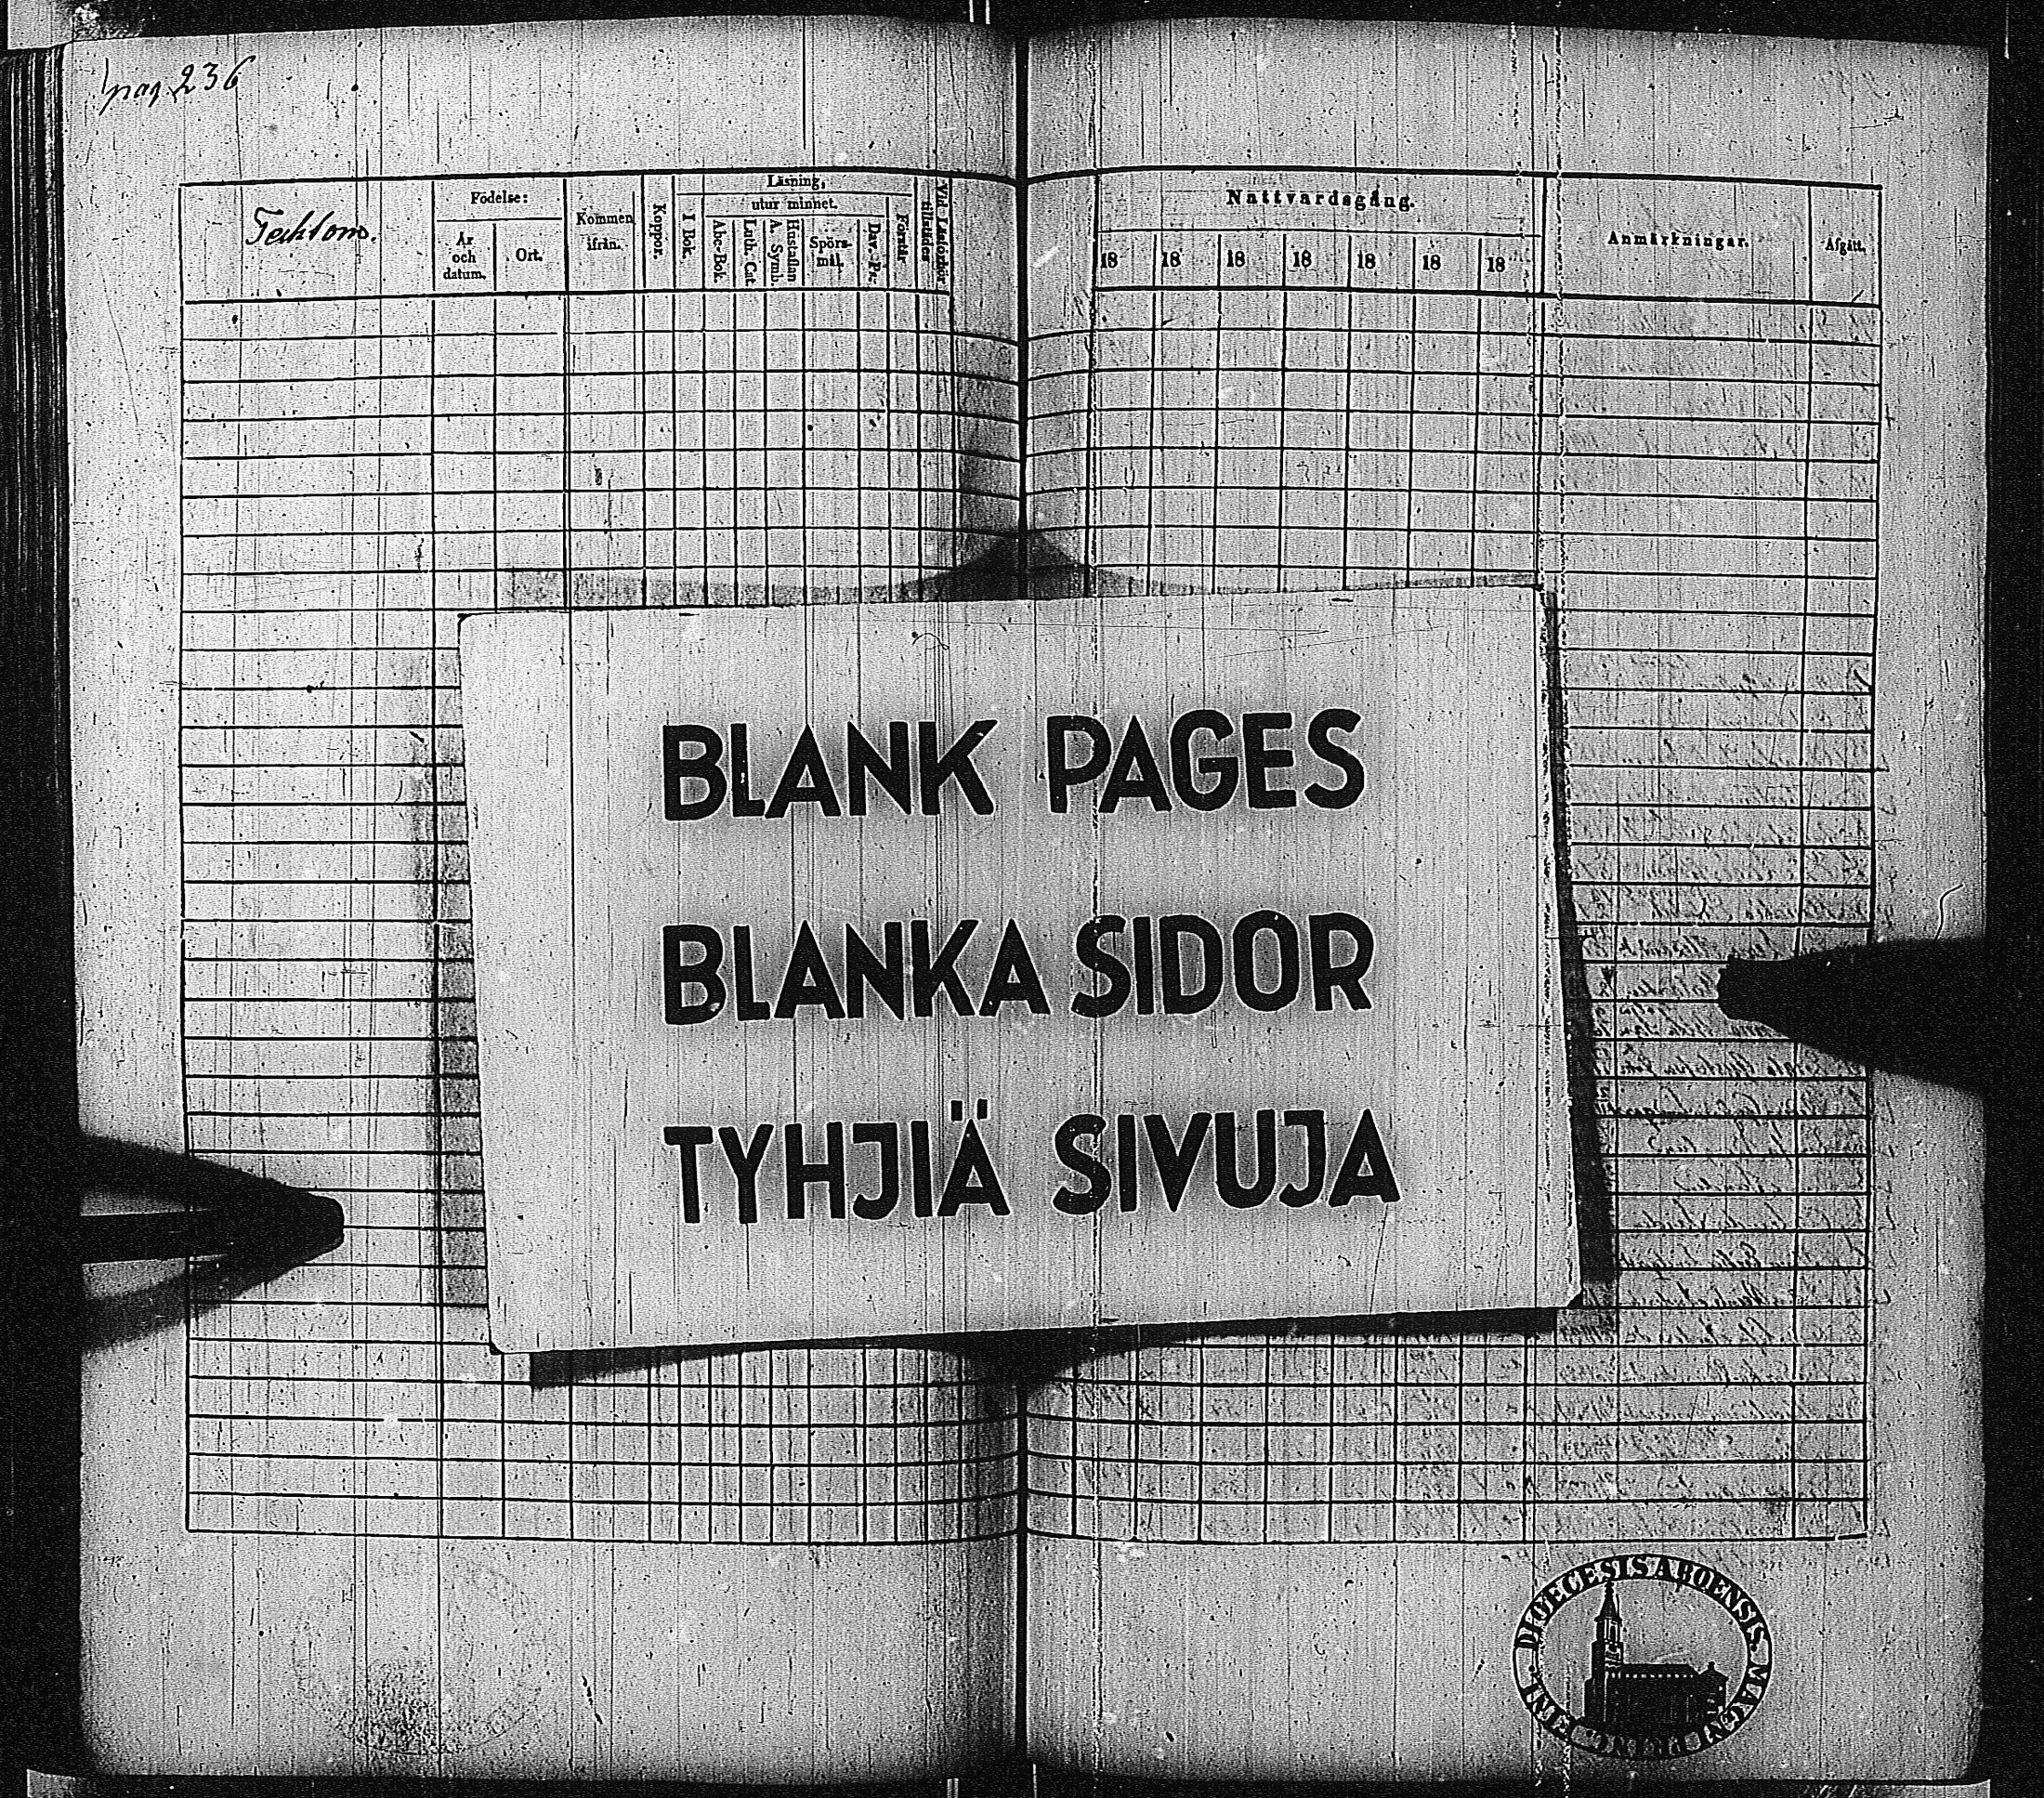 pag 236
Födelse:
År
och
datum.
Ort.
Kommen
ifrån.
Koppor.
Läsning,
I Bok.
utur minnet.
Abc-Bok.
Luth. Cat.
Hustaflan
A. Symb.
Spörs-
mål.
Dav. Ps.
Förstår
Vid Läsförhör
tillstädes
Nattvardsgång.
18 18 18 18 18 18 18
Anmärkningar.
Afgått.
BLANK PAGES
BLANKA SIDOR
TYHJIÄ SIVUJA
DIOECESIS ABOENSIS. MAGNI PRINC. FINL.